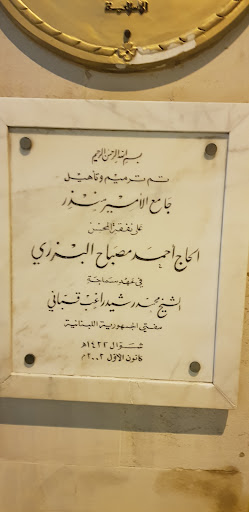 الإسلامية
بسم الله الرحمن الرحيم
تم ترميم وتأهيل
جامع الأمير منذر
على نفقة المحسن
الحاج أحمد مصباح البزري
في عهد سماحة
الشيخ محمد رشيد راغب قباني
مفتي الجمهورية اللبنانية
شوال ١٤٢٣هـ
كانون الأول ٢٠٠٢م